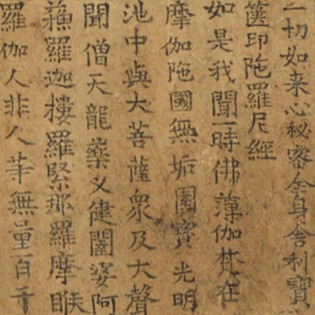 一切如来心秘密全身舍利寶
篋印陁羅尼経
如是我聞一時佛薄伽梵在
摩伽陁國無垢園寶光明
池中與大菩薩衆及大聲
聞僧天龍藥叉健闥婆阿
蘓羅迦樓羅緊那羅摩睺
羅伽人非人等無量百千